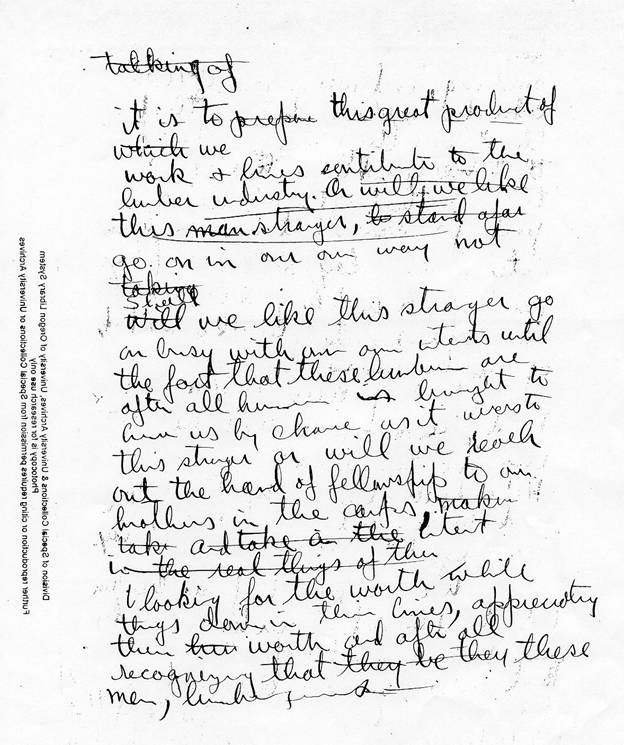 talking of
it is to prepare this great product of
which we
work & lives contribute to the
lumber industry. Or will we like
this man stranger, to stand afar
go on in our own way not
taking
Shall
Will we like this stranger go
on busy with our own intents until
the fact that these lumbermen are
after all human is brought to
us by chance as it were to
this stranger or will we reach
out the hand of fellowship to our
brothers in the camps, making
take and take in the intent
in the real things of their
looking for the worth while
things down in their lives, appreciating
their worth and after all
recognizing that they be they these
men, lumber
Division of Special Collections & University Archives, University of Oregon Library System
Photocopy is for research use only.
Further reproduction or citing requires permission from Special Collections or University Archives